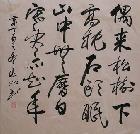 偶来松樹下
高枕石頭眠
山中無曆日
寒尽不知年